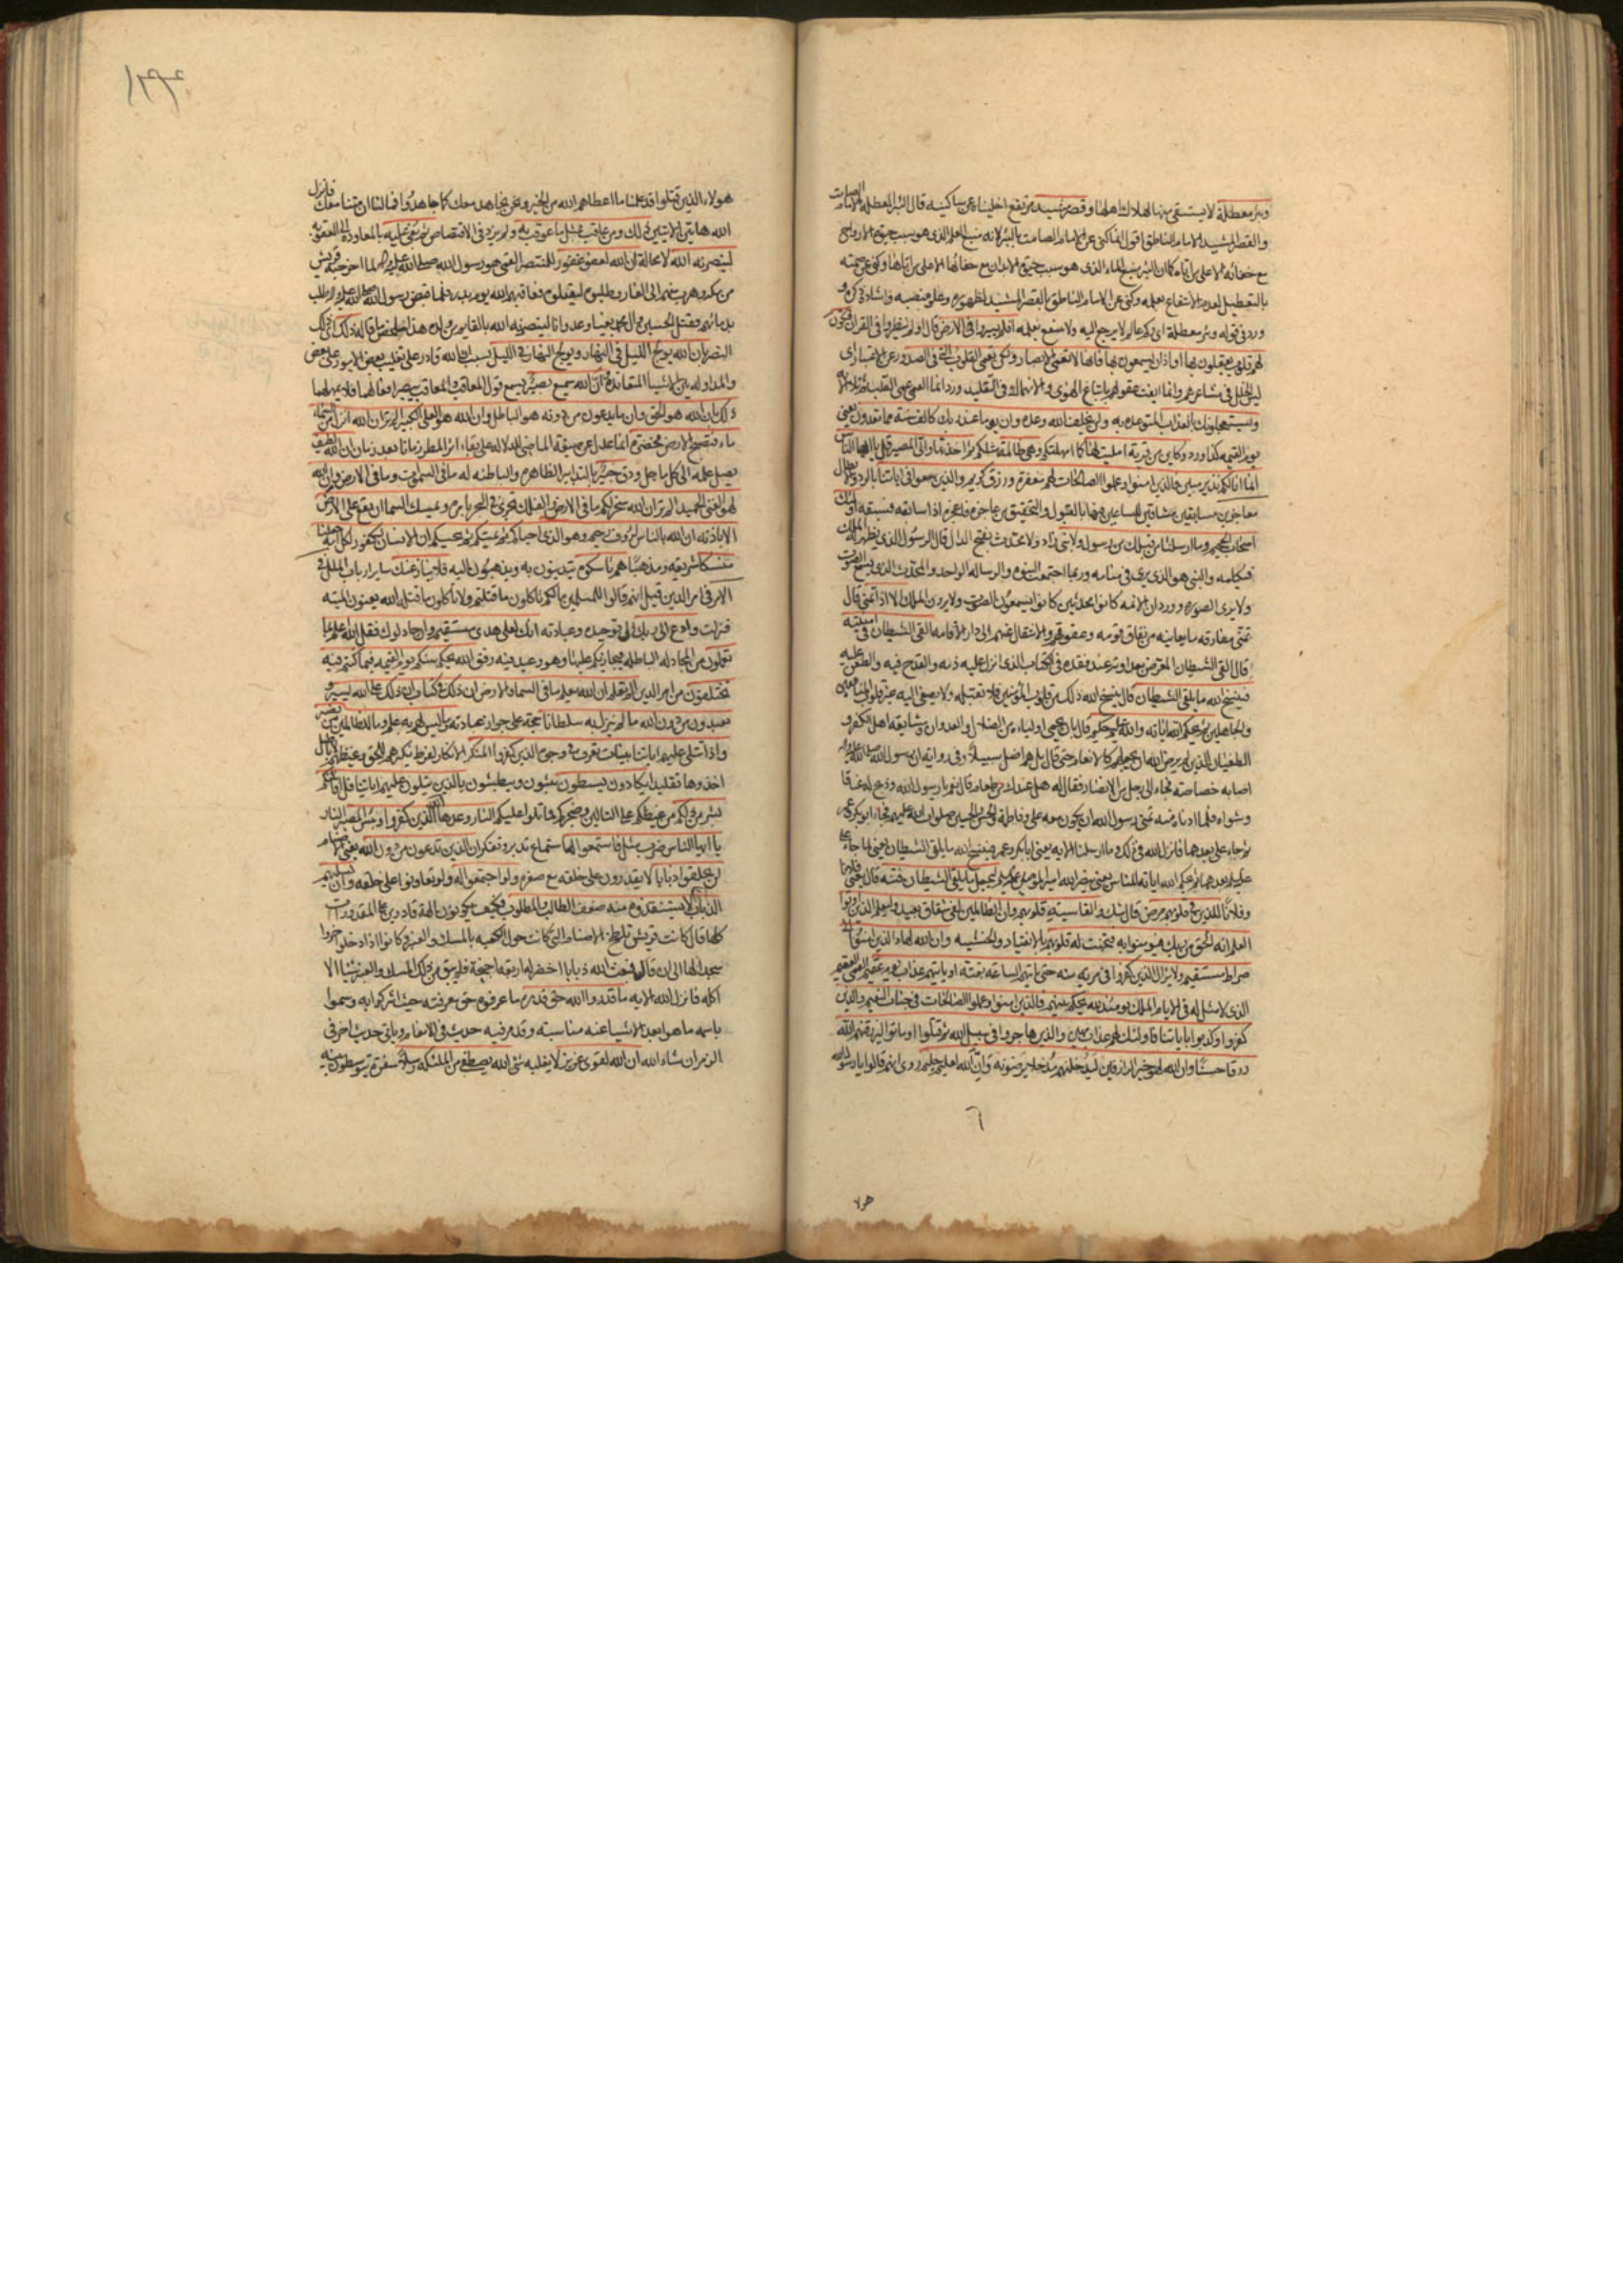 وبئر معطلة لا يستسقى منها لهلاك اهلها وقصر مشيد مرتفع اخليناه عن ساكنيه قال البئر المعطلة الامام الصامت
والقصر المشيد الامام الناطق اقول انما كنى عن الامام الصامت بالبئر لانه منبع العلم الذي هو سبب حيوة الارواح
مع خفائه الا على من اتاه كما ان البئر منبع الماء الذي هو سبب حيوة الابدان مع خفائها الا على من اتاها وكنى عن صمته
بالتعطيل لعدم الانتفاع بعلمه وكنى عن الامام الناطق بالقصر المشيد لظهوره وعلو منصبه واشادة ذكره و
ورد في قوله وبئر معطلة اي وكم عالم لا يرجع اليه ولا ينتفع بعلمه افلم يسيروا في الارض قال اولم ينظروا في القران فتكون
لهم قلوب يعقلون بها او اذان يسمعون بها فانها لا تعمى الابصار ولكن تعمى القلوب التي في الصدور عن الاعتبار اي
ليس الخلل في مشاعرهم وانما ايفت عقولهم باتباع الهوى والانهماك في التقليد ورد انما العمى عمى القلب ثم تلا الاية
ويستعجلونك بالعذاب المتوعد به ولن يخلف الله وعده وان يوما عند ربك كالف سنة مما تعدون يعني
يوم القيمه كذا ورد وكاين من قرية امليت لها كما امهلتكم وهي ظالمة مثلكم ثم اخذتها والي المصير قل يا ايها الناس
انما انا لكم نذير مبين فالذين امنوا وعملوا الصالحات لهم مغفرة ورزق كريم والذين سعوا في اياتنا بالرد والابطال
معاجزين مسابقين مشاقين للساعين فيها بالقبول والتحقيق من عاجزه فاعجزه اذا سابقه فسبقه اولئك
اصحاب الجحيم وما ارسلنا من قبلك من رسول ولا نبي زاد ولا محدث بفتح الدال قال الرسول الذي يظهر له الملك
فيكلمه والنبي هو الذي يرى في منامه وربما اجتمعت النبوه والرساله لواحد والمحدث الذي يسمع الصوت
ولا يرى الصوره وورد ان الائمه كانوا محدثين كانوا يسمعون الصوت ولا يرون الملك الا اذا تمنى قال
تمنى مفارقه ما يعاينه من نفاق قومه وعقوقهم والانتقال عنهم الى دار الاقامه القى الشيطان في امنيته
قال القى الشيطان المعرض بعداوته عند فقده في الكتاب الذي انزل عليه ذمه والقدح فيه والطعن عليه
فينسخ الله ما يلقي الشيطان قال ينسخ الله ذلك من قلوب المؤمنين فلا تقبله ولا يصغي اليه غير قلوب المنافقين
والجاهلين ثم يحكم الله اياته والله عليم حكيم قال بان يحمي اولياءه من الضلال والعدوان ومشايعه اهل الكفر و
الطغيان الذين لم يرض الله ان يجعلهم كالانعام حتى قال بل هم اضل سبيلا وفي روايه ان رسول الله صلى الله عليه واله
اصابه خصاصة فجاء الى رجل من الانصار فقال له هل عندك من طعام قال نعم يا رسول الله وذبح له عناقا
وشواه فلما ادناه منه تمنى رسول الله ان يكون معه علي وفاطمة والحسن والحسين صلوات الله عليهم فجاء ابو بكر وعمر
ثم جاء علي بعدهما فانزل الله في ذلك وما ارسلنا الايه يعني ابا بكر وعمر فينسخ الله ما يلقي الشيطان يعني لما جاء
علي بعدهما ثم يحكم الله اياته للناس يعني ينصر الله امير المؤمنين ليجعل ما يلقي الشيطان فتنة قال يعني فلانا
وفلانا للذين في قلوبهم مرض قال شك والقاسية قلوبهم وان الظالمين لفي شقاق بعيد وليعلم الذين اوتوا
العلم انه الحق من ربك فيؤمنوا به فتخبت له قلوبهم بالانقياد والخشيه وان الله لهاد الذين امنوا الى
صراط مستقيم ولا يزال الذين كفروا في مرية منه حتى تاتيهم الساعة بغتة او ياتيهم عذاب يوم عقيم العقيم
الذي لا مثل له في الايام الملك يومئذ لله يحكم بينهم فالذين امنوا وعملوا الصالحات في جنات النعيم والذين
كفروا وكذبوا باياتنا فاولئك لهم عذاب مهين والذين هاجروا في سبيل الله ثم قتلوا او ماتوا ليرزقنهم الله
رزقا حسنا وان الله لهو خير الرازقين ليدخلنهم مدخلا يرضونه وان الله لعليم حليم روي انهم قالوا يا رسول الله
٦
هولا
١٣٩٤
هولاء الذين قتلوا قد علمنا ما اعطاهم الله من الخير ونحن نجاهد معك كما جاهدوا فما لنا ان متنا معك فانزل
الله هاتين الايتين ذلك ومن عاقب بمثل ما عوقب به ولم يزد في الاقتصاص ثم بغي عليه بالمعاودة الى العقوبه
لينصرنه الله لا محالة ان الله لعفو غفور للمنتصر القمي هو رسول الله صلى الله عليه واله لما اخرجته قريش
من مكه وهرب منهم الى الغار وطلبوه ليقتلوه فعاقبهم الله يوم بدر فلما قبض رسول الله صلى الله عليه واله طلب
بدمائهم فقتل الحسين وال محمد بغيا وعدوانا لينصرنه الله بالقايم من ولده هذا ملخص ما قاله ذلك اي ذلك
النصر بان الله يولج الليل في النهار ويولج النهار في الليل بسبب ان الله قادر على تغليب بعض الامور على بعض
والمداوله بين الاشيا المتعانده وان الله سميع بصير يسمع قول المعاقب والمعاقب يبصر افعالهما فلا يهملهما
ذلك بان الله هو الحق وان ما يدعون من دونه هو الباطل وان الله هو العلي الكبير الم تر ان الله انزل من السماء
ماء فتصبح الارض مخضرة انما عدل عن صيغة الماضي للدلاله على بقاء اثر المطر زمانا بعد زمان ان الله لطيف
يصل علمه الى كل ما جل ودق خبير بالتدابير الظاهرة والباطنه له ما في السموات وما في الارض وان الله
لهو الغني الحميد الم تر ان الله سخر لكم ما في الارض والفلك تجري في البحر بامره ويمسك السماء ان تقع على الارض
الا باذنه ان الله بالناس لرؤف رحيم وهو الذي احياكم ثم يميتكم ثم يحييكم ان الانسان لكفور لكل امة جعلنا
منسكا شريعه ومذهبا هم ناسكوه يتدينون به ويذهبون اليه فلا ينازعنك ساير ارباب الملل في
الامر في امر الدين قيل انهم قالوا للمسلمين ما لكم تاكلون ما قتلتم ولا تاكلون ما قتله الله يعنون الميته
فنزلت وادع الى ربك الى توحيده وعبادته انك لعلى هدى مستقيم وان جادلوك فقل الله اعلم بما
تعملون من المجادله الباطله فيجازيكم عليها وهو وعيد فيه رفق الله يحكم بينكم يوم القيمه فيما كنتم فيه
تختلفون من امر الدين الم تعلم ان الله يعلم ما في السماء والارض ان ذلك في كتاب ان ذلك على الله يسير و
يعبدون من دون الله ما لم ينزل به سلطانا حجة على جواز عبادته وما ليس لهم به علم وما للظالمين من نصير
واذا تتلى عليهم اياتنا بينات تعرف في وجوه الذين كفروا المنكر الانكار لفرط نكيرهم للحق وغيظهم لاباطيل
اخذوها تقليدا يكادون يسطون يثبون ويبطشون بالذين يتلون عليهم اياتنا قل افانبئكم
بشر من ذلكم من غيظكم على التالين وضجركم مما تلوا عليكم النار وعدها الله الذين كفروا وبئس المصير النار
يا ايها الناس ضرب مثل فاستمعوا له استماع تدبر وتفكر ان الذين تدعون من دون الله يعني الاصنام
لن يخلقوا ذبابا لا يقدرون على خلقه مع صغره ولو اجتمعوا له ولو تعاونوا على خلقه وان يسلبهم
الذباب شيئا لا يستنقذوه منه ضعف الطالب والمطلوب فكيف يكونون الهة قادرين على المقدورات
كلها قال كانت قريش تلطخ الاصنام التي كانت حول الكعبه بالمسك والعنبر وكانوا اذا دخلوا خروا
سجدا لها الى ان قال فبعث الله ذبابا اخضر له اربعه اجنحة فلم يبق من ذلك المسك والعنبر شيئا الا
اكله فانزل الله الايه ما قدروا الله حق قدره ما عرفوه حق معرفته حيث اشركوا به وسموا
باسمه ما هو ابعد الاشيا عنه مناسبته وقد مر فيه حديث في الانعام وياتي حديث اخر في
الزمر ان شاء الله ان الله لقوي عزيز لا يغلبه شئ الله يصطفي من الملئكة رسلا سفرة يتوسطون بينه